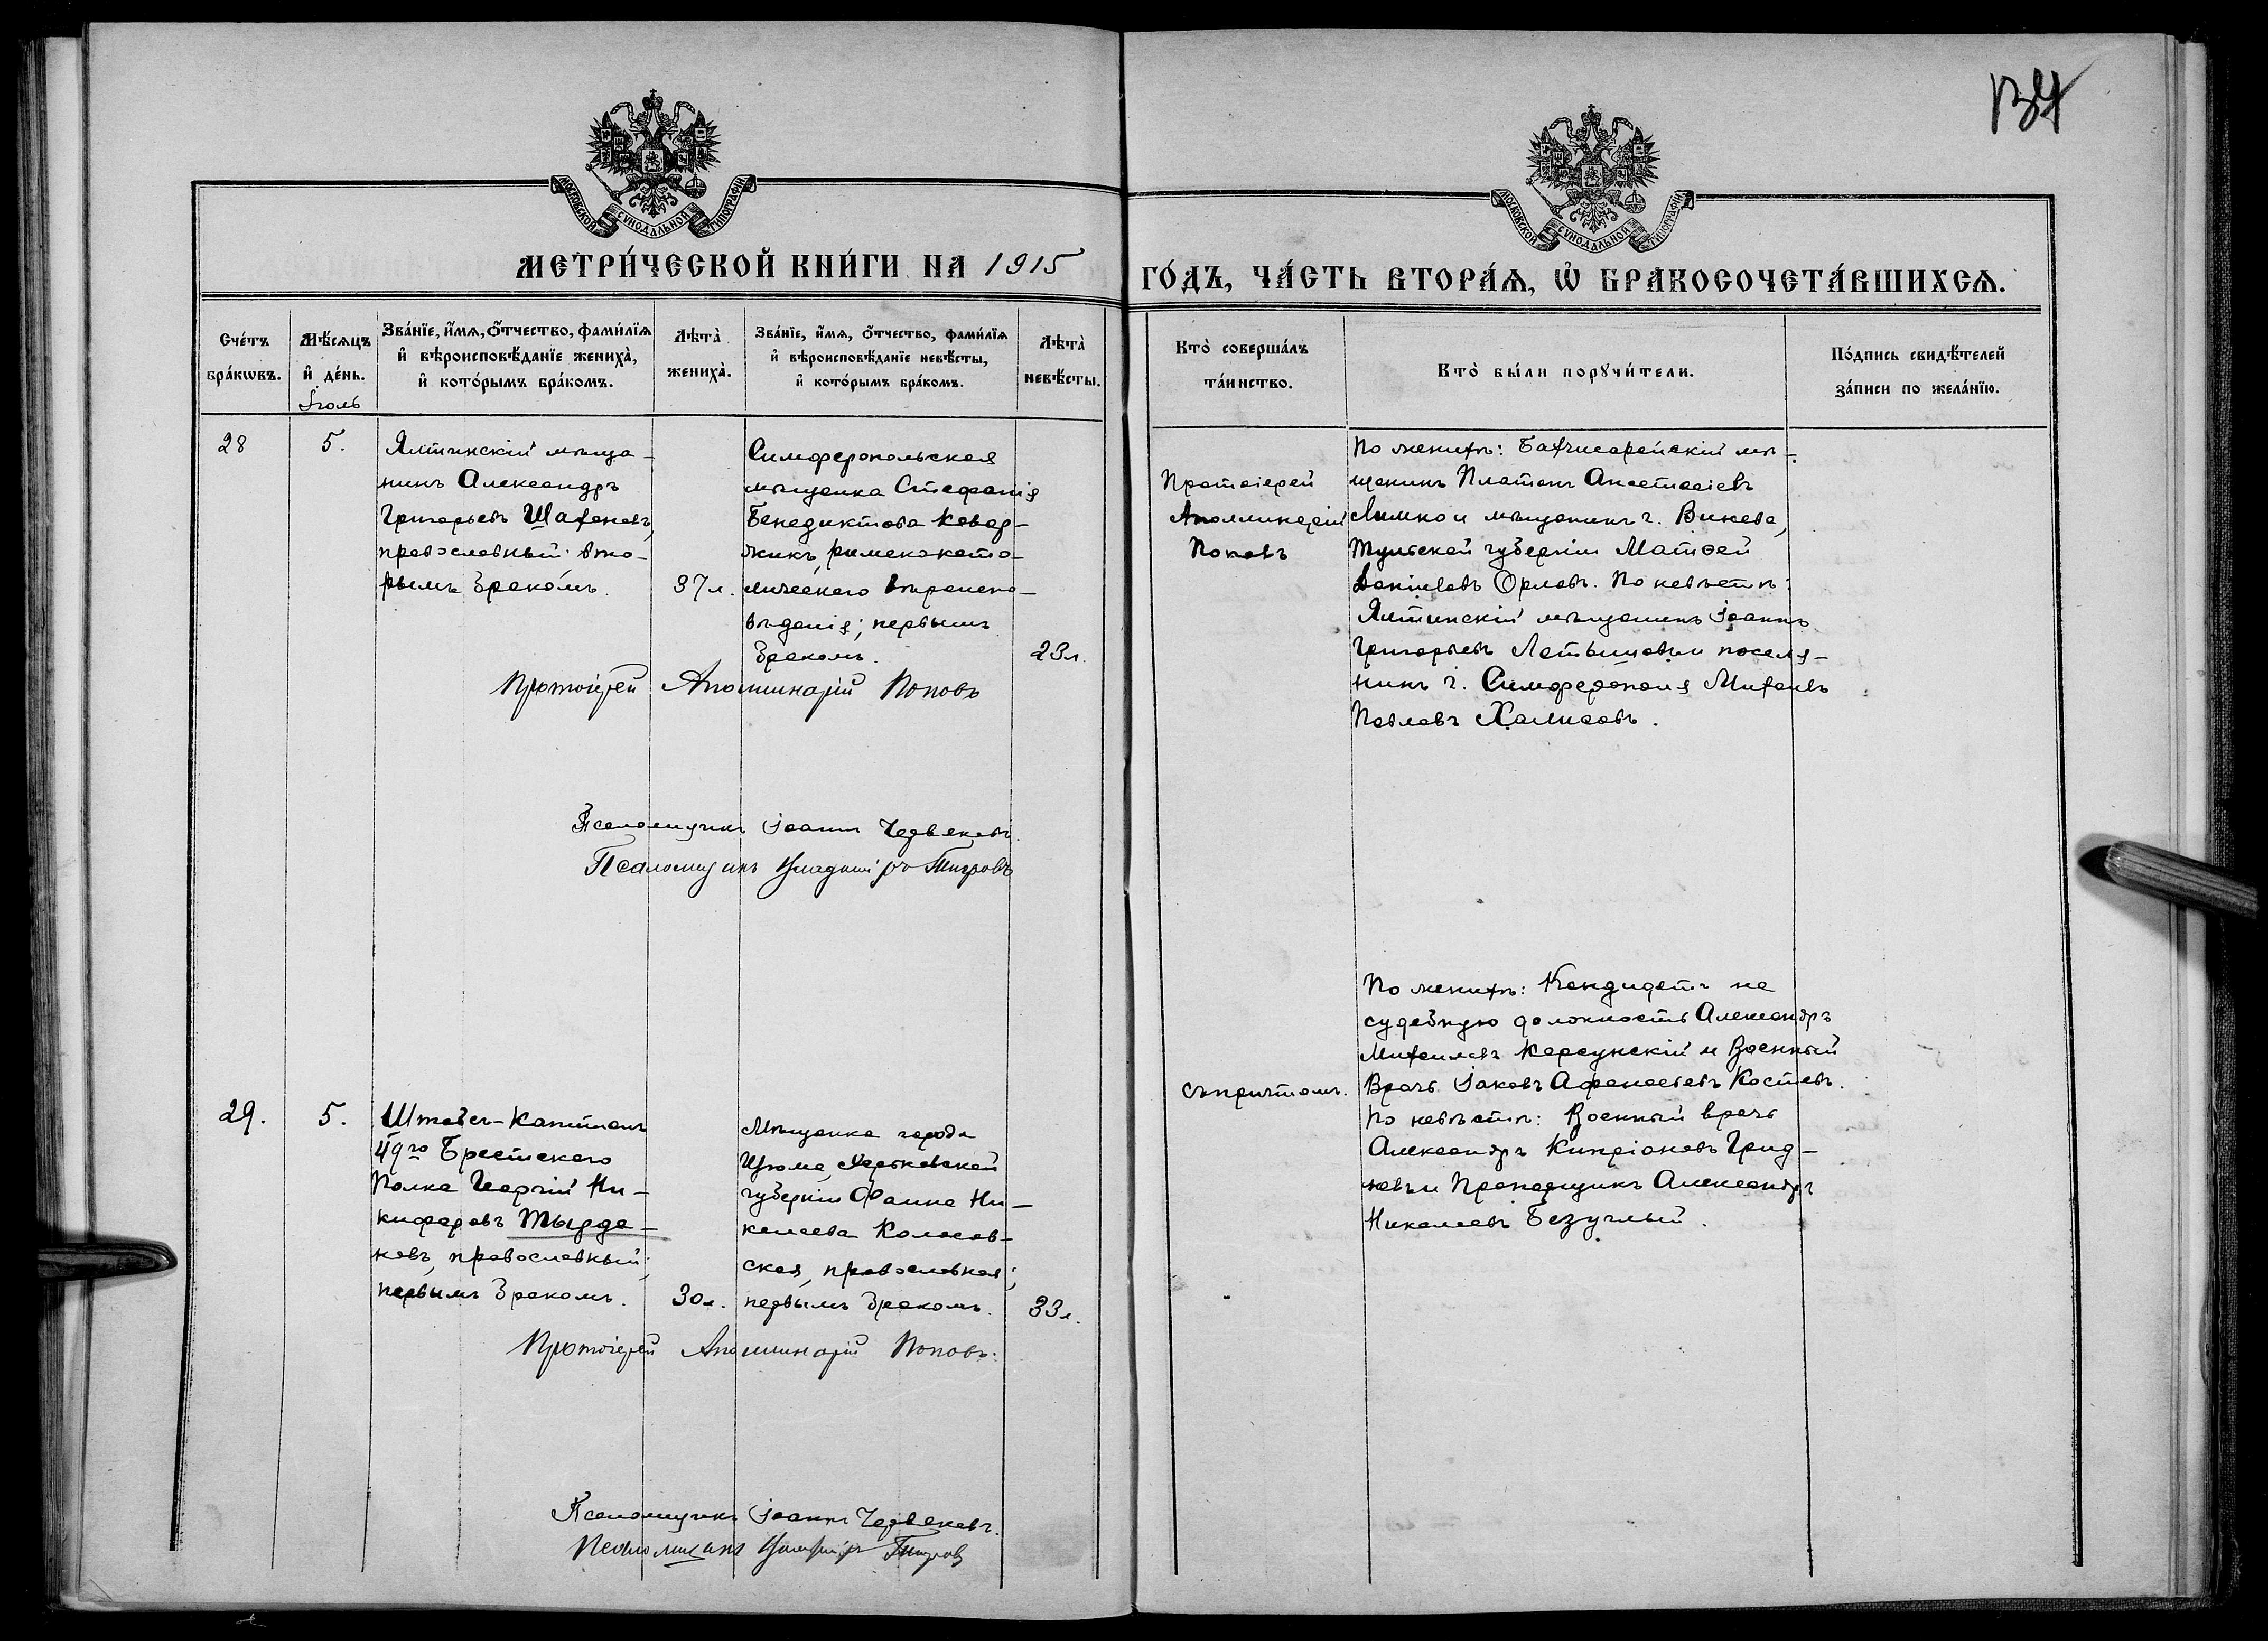 134
МОСКОВСКОЙ СѴНОДАЛЬНОЙ ТИПОГРАФІИ.
МОСКОВСКОЙ СѴНОДАЛЬНОЙ ТИПОГРАФІИ.
МЕТРИ́ЧЕСКОЙ КНИ́ГИ НА 1915
ГО́ДЪ, ЧА́СТЬ ВТОРА́Ѧ, Ѡ҆ БРАКОСОЧЕТА́ВШИХСѦ.
Сче́тъ
бра́кѡвъ.
Мѣ́сѧцъ
и҆ де́нь.
Іюль
Зва́нїе, и҆́мѧ, ѻ҆́тчество, фами́лїѧ
и҆ вѣроисповѣ́данїе жениха̀,
и҆ кото́рымъ бра́комъ.
Лѣта̀
жениха̀.
Зва́нїе, и҆́мѧ, ѻ҆́тчество, фами́лїѧ
и҆ вѣроисповѣ́данїе невѣ́сты,
и҆ кото́рымъ бра́комъ.
Лѣта̀
невѣ́сты.
Кто̀ соверша́лъ
та́инство.
Кто̀ бы́ли порꙋчи́тели.
По́дпись свидѣ́телей
за́писи по жела́нїю.
28
5.
Ялтинскій мѣща-
нинъ Александръ
Григорьевъ Шахановъ,
православный; вто-
рымъ бракомъ.
37 л.
Симферопольская
мѣщанка Стефанія
Бенедиктова Ковар-
жикъ, римскокато-
лическаго вѣроиспо-
вѣданія; первымъ
бракомъ.
23 л.
Протоіерей
Аполлинарій
Поповъ
По женихѣ: Бахчисарейскій мѣ-
щанинъ Платонъ Анастасіевъ
Лимко и мѣщанинъ г. Винева,
Тульской губерніи Матѳей
Даніиловъ Орловъ. По невѣстѣ:
Ялтинскій мѣщанинъ Іоаннъ
Григорьевъ Латышовъ и поселя-
нинъ г. Симферополя Михаилъ
Павловъ Халисовъ.
Протоіерей Аполлинарій Поповъ
Псаломщикъ Іоаннъ Червяковъ.
Псаломщикъ Владиміръ Тигровъ
29.
5.
Штабсъ-Капитанъ
49го Брестскаго
Полка Георгій Ни-
кифоровъ Тырда-
новъ, православный;
первымъ бракомъ.
30 л.
Мѣщанка города
Изюма, Харьковской
губерніи Фаина Ни-
колаева Колосов-
ская, православная;
первымъ бракомъ.
33 л.
Съ причтомъ.
По женихѣ: Кандидатъ на
судебную должность Александръ
Михаиловъ Карсунскій и Военный
Врачъ Іаковъ Афанасьевъ Костевъ.
По невѣстѣ: Военный врачъ
Александръ Кипріановъ Грид-
невъ и Прапорщикъ Александръ
Николаевъ Безуглый.
Протоіерей Аполлинарій Поповъ.
Псаломщикъ Іоаннъ Червяковъ.
Псаломщикъ Владиміръ Тигровъ